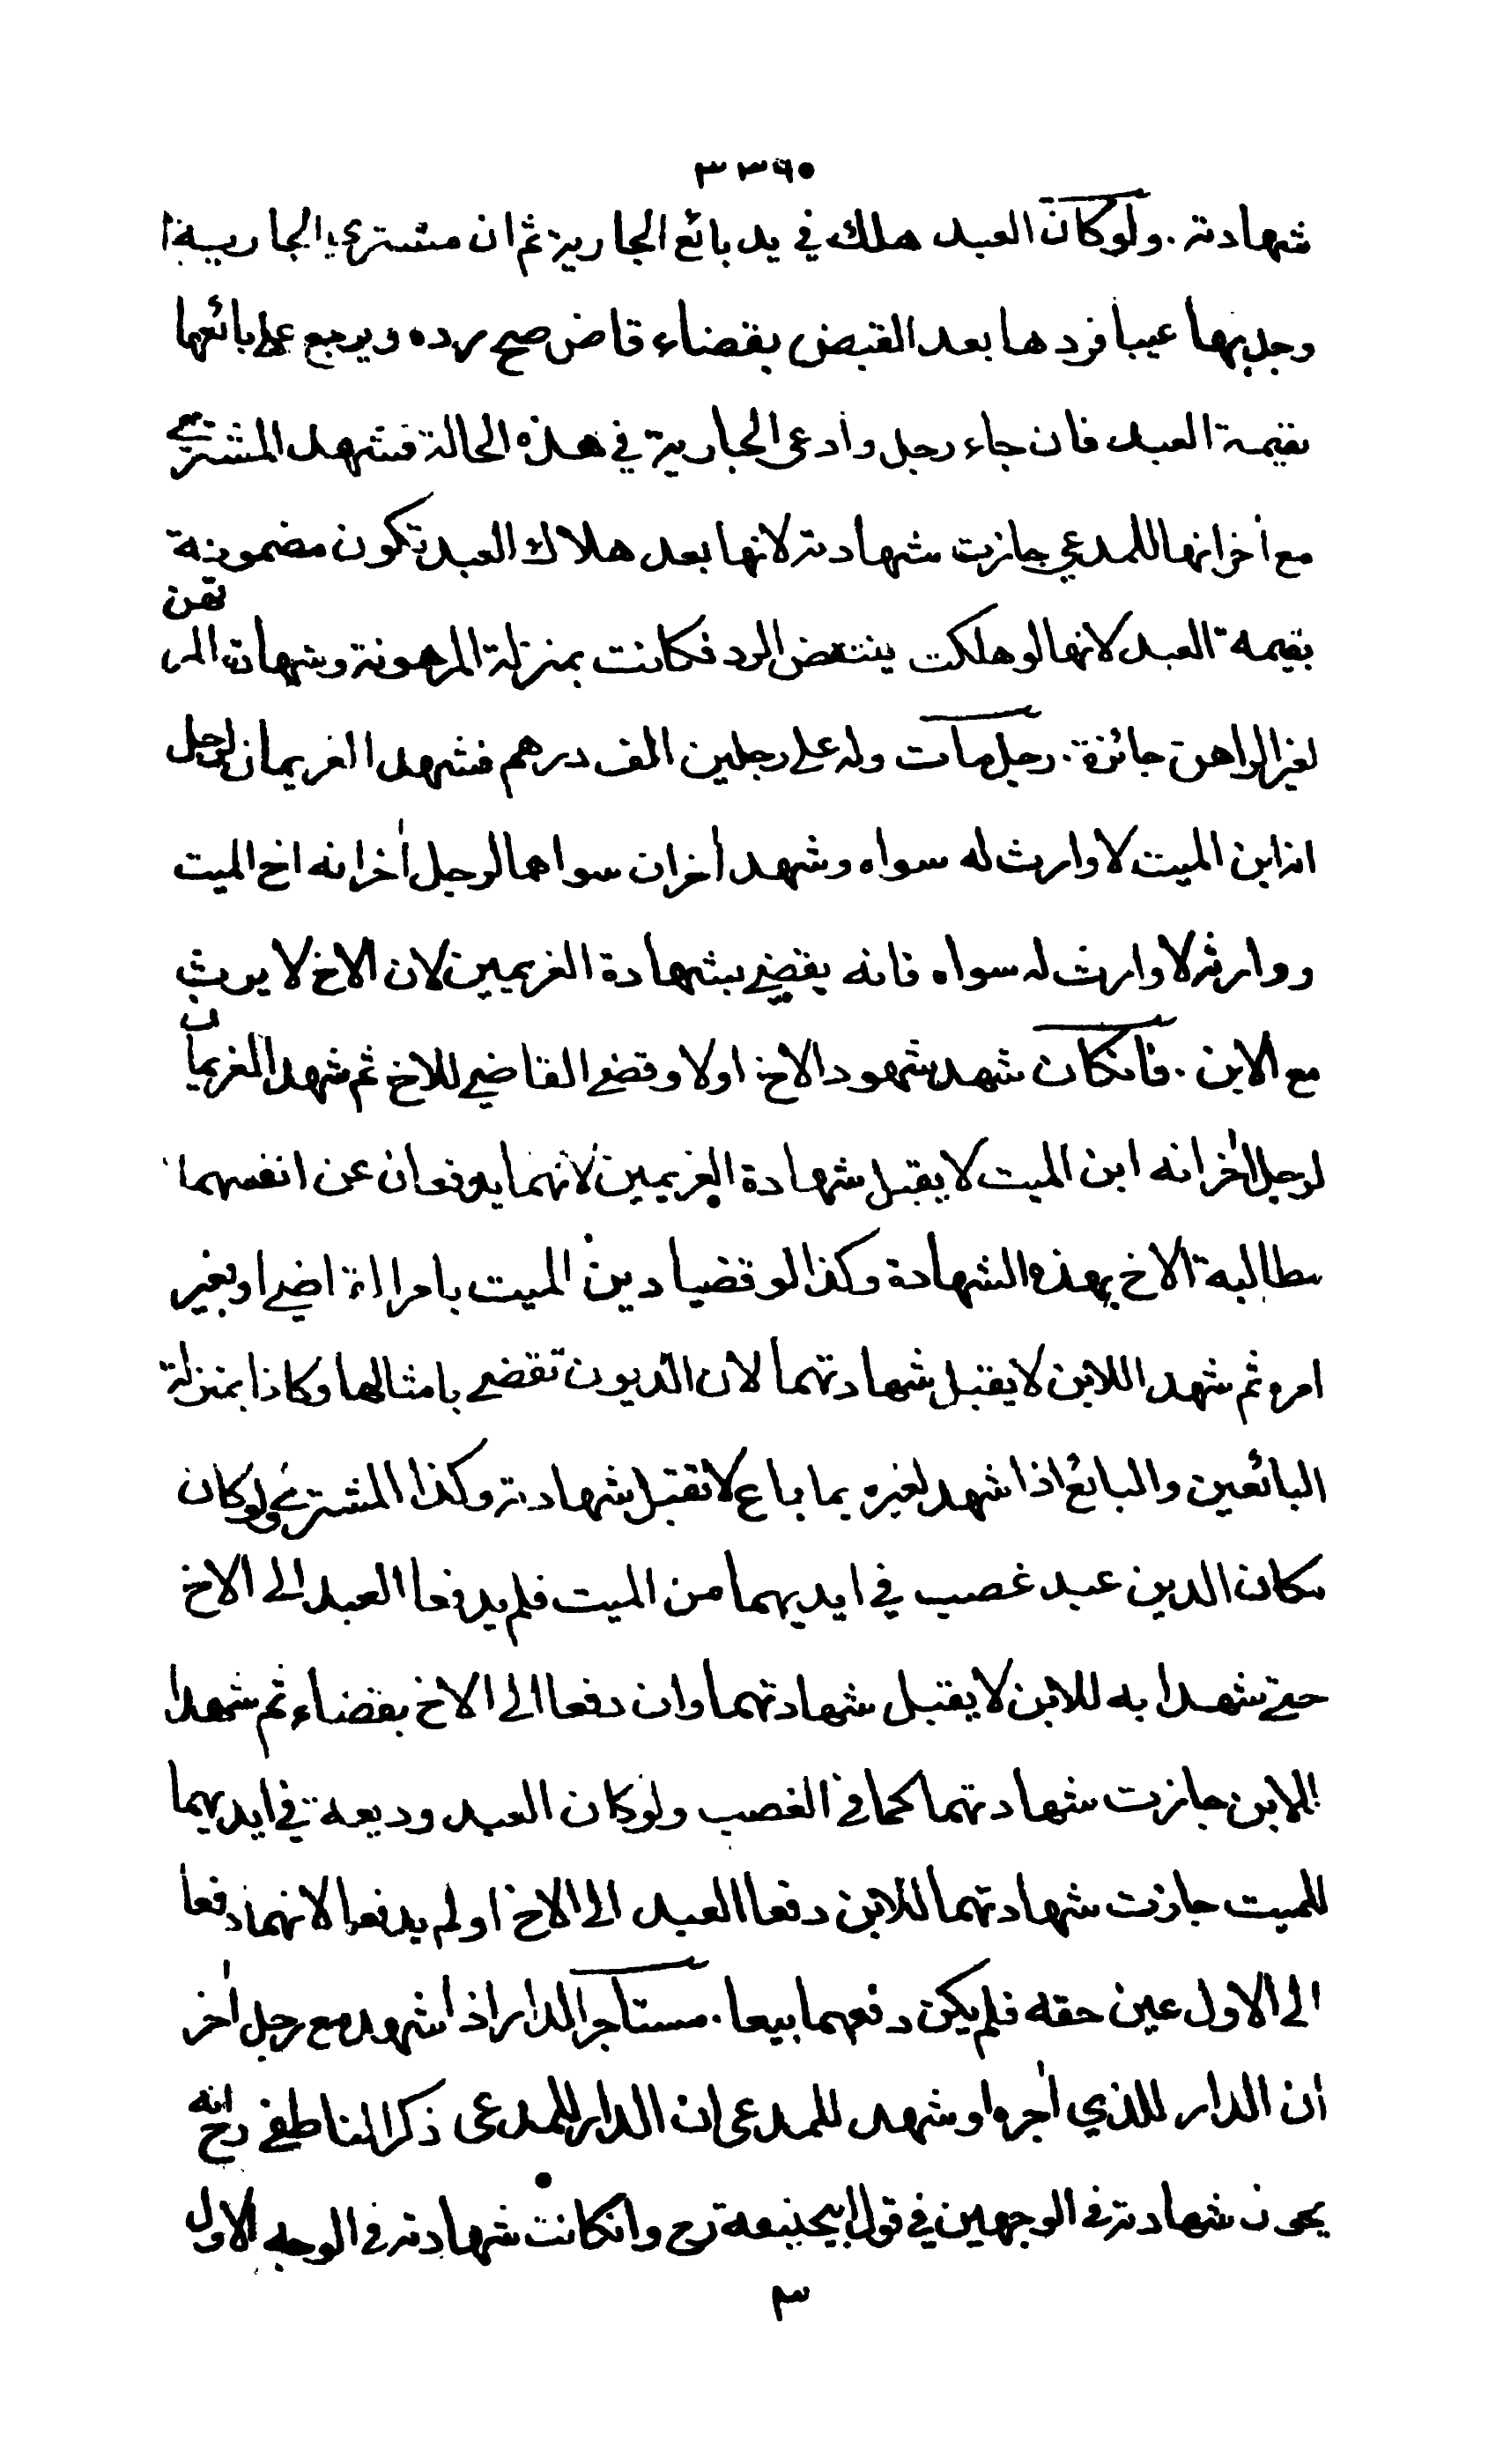 ٣٣٦٠
شهادته . ولو كان العبد هلك في يد بائع الجارية ثم ان مشتري الجارية
وجد بها عيبا فردها بعد القبض بقضاء قاض صح رده ويرجع على بائعها
بقيمة العبد فان جاء رجل وادعى الجارية في هذه الحالة فشهد المشتري
مع أخر انها للمدعي جازت شهادته لانها بعد هلاك العبد تكون مضمونة
بقيمة العبد لانها لو هلكت ينتقض الرد فكانت بمنزلة المرهونة وشهادة المرتهن
لغير الراهن جائزة . رجل مات وله على رجلين الف درهم فشهد الغريمان لرجل
انه ابن الميت لا وارث له سواه وشهد أخران سواهما لرجل أخر انه اخ الميت
ووارثه لا وارث له سواه فانه يقضي بشهادة الغريمين لان الاخ لا يرث
مع الابن . فانكان شهد شهود الاخ اولا وقضى القاضي للاخ ثم شهد الغريمان
لرجل أخر انه ابن الميت لا يقبل شهادة الغريمين لانهما يدفعان عن انفسهما
مطالبة الاخ بهذه الشهادة وكذا لو قضيا دين الميت بامر القاضي او بغير
امره ثم شهدا للابن لا يقبل شهادتهما لان الديون تقضى بامثالها وكانا بمنزلة
البائعين والبائع اذا شهد لغيره بما باع لا تقبل شهادته وكذا المشتري ولو كان
مكان الدين عبد غصب في ايديهما من الميت فلم يدفعا العبد الى الاخ
حتى شهدا به للابن لا يقبل شهادتهما وان دفعا الى الاخ بقضاء ثم شهدا
للابن جازت شهادتهما كما في الغصب ولو كان العبد وديعة في ايديهما
للميت جازت شهادتهما للابن دفعا العبد الى الاخ او لم يدفعا لانهما دفعا
الى الاول عين حقه فلم يكن دفعهما بيعا . مستاجر الدار اذا شهد مع رجل أخر
ان الدار للذي أجره او شهد للمدعى ان الدار للمدعى ذكر الناطفي رح انه
يجوز شهادته في الوجهين في قول ابيحنيفة رح وانكانت شهادته في الوجه الاول
٣